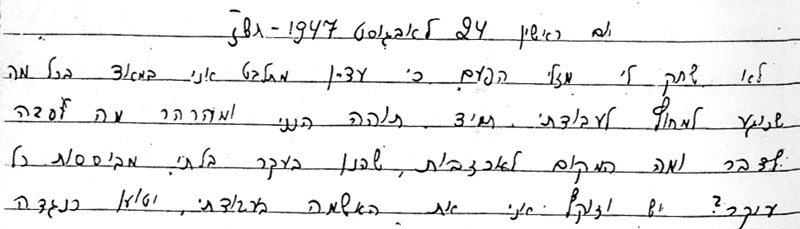 יום ראשון 24 לאבגוסט 1947 - תש"ז
לא שחק לי מזלי הפעם כי עדין מתלבט אני במאוד בכל מה
שנוגע למחוץ לעבודתי. תמיד תוהה הנני ומהרהר מה הסבה
לדבר ומה המקום לאכזבות, שהנן בעקר בלתי מבוססות כל
עיקר? יש וזוקף אני את האשמה בעבודתי, וטוען כנגדה